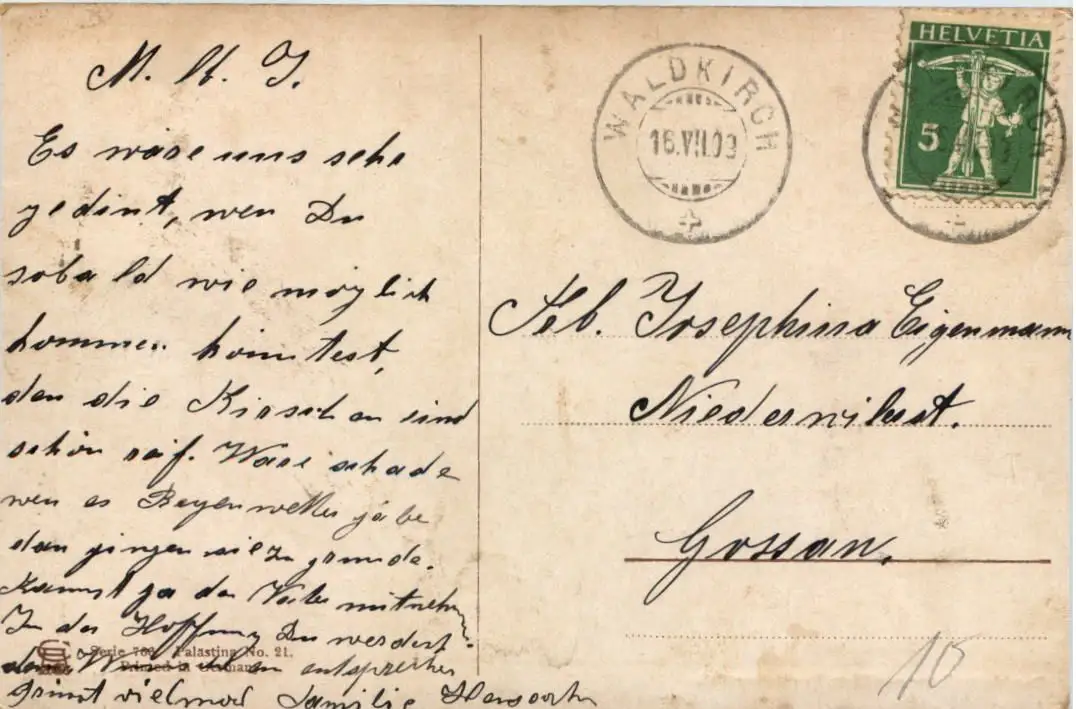 M. lb. J.
Es wäre uns sehr
gedint, wen Du
sobald wie möglich
kommen komtest,
den die Kirschen sind
schon reif. Wäre schade
wen es Regenwetter gäbe
dan gingen sie zu grunde.
Kannst ja den Vater mitnehm.
In der Hoffnung Du werdest
dem entsprechen
grüsst vielmal Familie
Serie 786 Palästina No. 21.
Printed in Germany
WALDKIRCH
16.VII.09
HELVETIA
5
Feb. Josephina Eigenmann
Niederwilerst.
Gossau.
10